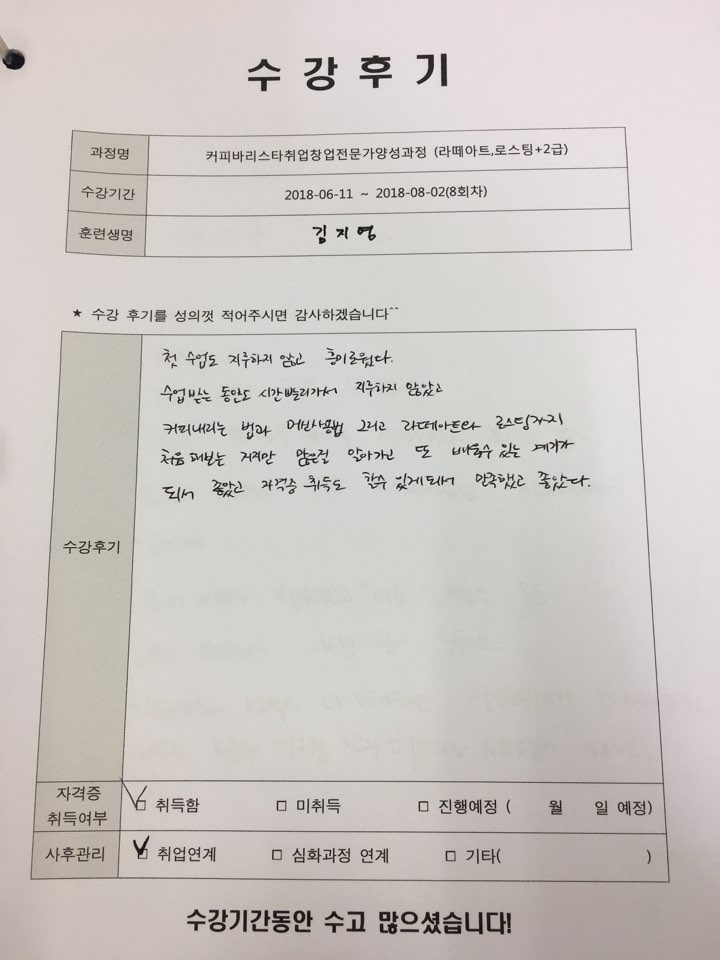 수강후기
과정명 커피바리스타취업창업전문가양성과정 (라떼아트,로스팅+2급)
수강기간 2018-06-11 ~ 2018-08-02(8회차)
훈련생명 김지영
★ 수강 후기를 성의껏 적어주시면 감사하겠습니다^^
첫 수업도 지루하지 않고 흥미로웠다.
수업받는 동안도 시간빨리가서 지루하지 않았고
커피내리는 법과 머신사용법 그리고 라떼아트와 로스팅까지
처음 해보는 거지만 많은걸 알아가고 또 배울수 있는 계기가
되서 좋았고 자격증 취득도 할수 있게되서 만족했고 좋았다.
수강후기
자격증
취득여부 □ 취득함 □ 미취득 □ 진행예정 ( 월 일 예정)
사후관리 □ 취업연계 □ 심화과정 연계 □ 기타( )
수강기간동안 수고 많으셨습니다!